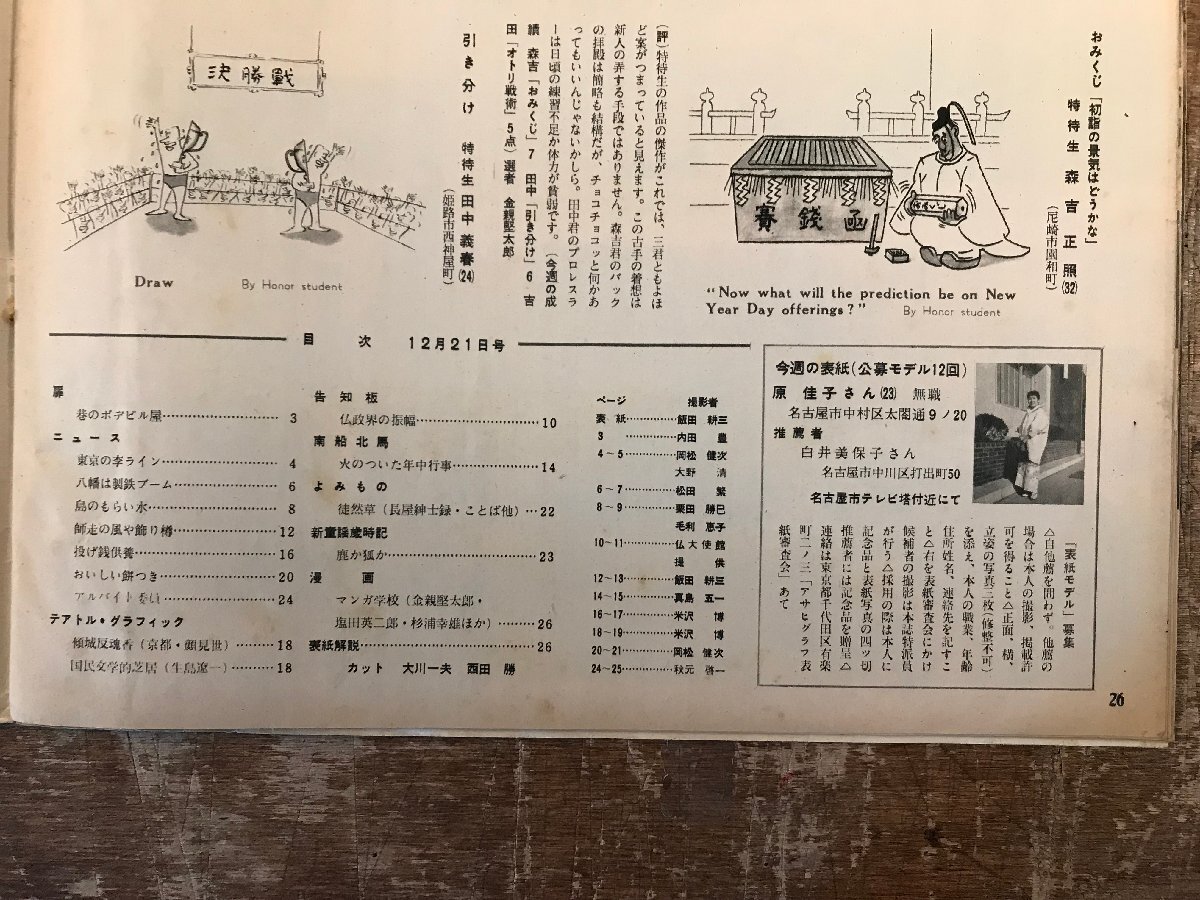 おみくじ「初詣の景気はどうかな」
特待生 森吉正照(32)
(尼崎市園和町)
賽銭函
"Now what will the prediction be on New
Year Day offerings?"
By Honor student
(評)特待生の作品の傑作がこれでは、三君ともよほ
ど案がつまっていると見えます。この古手の着想は
新人の弄する手段ではありません。森吉君のバック
の拝殿は簡略も結構だが、チョコチョコッと何かあ
ってもいいんじゃないかしら。田中君のプロレスラ
ーは日頃の練習不足か体力が貧弱です。(今週の成
績 森吉「おみくじ」7 田中「引き分け」6 吉
田「オトリ戦術」5点)選者 金親堅太郎
引き分け 特待生 田中義春(24)
(姫路市西神屋町)
決勝戦
Draw
By Honor student
目次 12月21日号
扉
巷のボデビル屋……3
ニュース
東京の李ライン……4
八幡は製鉄ブーム……6
島のもらい水……8
師走の風や飾り樽……12
投げ銭供養……16
おいしい餅つき……20
アルバイト委員……24
テアトル・グラフィック
傾城反魂香(京都・顔見世)……18
国民文学的芝居(生島遼一)……18
告知板
仏政界の振幅……10
南船北馬
火のついた年中行事……14
よみもの
徒然草(長屋紳士録・ことば他)…22
新童謡歳時記
鹿か狐か……23
漫画
マンガ学校(金親堅太郎・
塩田英二郎・杉浦幸雄ほか)……26
表紙解説……26
カット 大川一夫 西田勝
ページ 撮影者
表紙……飯田耕三
3……内田豊
4~5……岡松健次
大野清
6~7……松田繁
8~9……栗田勝巳
毛利恵子
10~11……仏大使館
提供
12~13……飯田耕三
14~15……真島五一
16~17……米沢博
18~19……米沢博
20~21……岡松健次
24~25……秋元啓一
今週の表紙(公募モデル12回)
原佳子さん(23) 無職
名古屋市中村区太閤通9ノ20
推薦者
白井美保子さん
名古屋市中川区打出町50
名古屋市テレビ塔付近にて
「表紙モデル」募集
△自他薦を問わず。他薦の
場合は本人の撮影、掲載許
可を得ること△正面、横、
立姿の写真三枚(修整不可)
を添え、本人の職業、年齢
住所姓名、連絡先を記すこ
と△右を表紙審査会にかけ
候補者の撮影は本誌特派員
が行う△採用の際は本人に
記念品と表紙写真の四ツ切
推薦者には記念品を贈呈△
連絡は東京都千代田区有楽
町二ノ三「アサヒグラフ表
紙審査会」あて
26